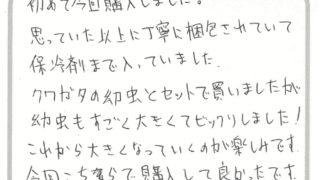 初めて今回購入しました。
思っていた以上に丁寧に梱包されていて
保冷剤まで入っていました。
クワガタの幼虫とセットで買いましたが
幼虫もすごく大きくてビックリしました!
これから大きくなっていくのが楽しみです
今回こちらで購入して良かったです